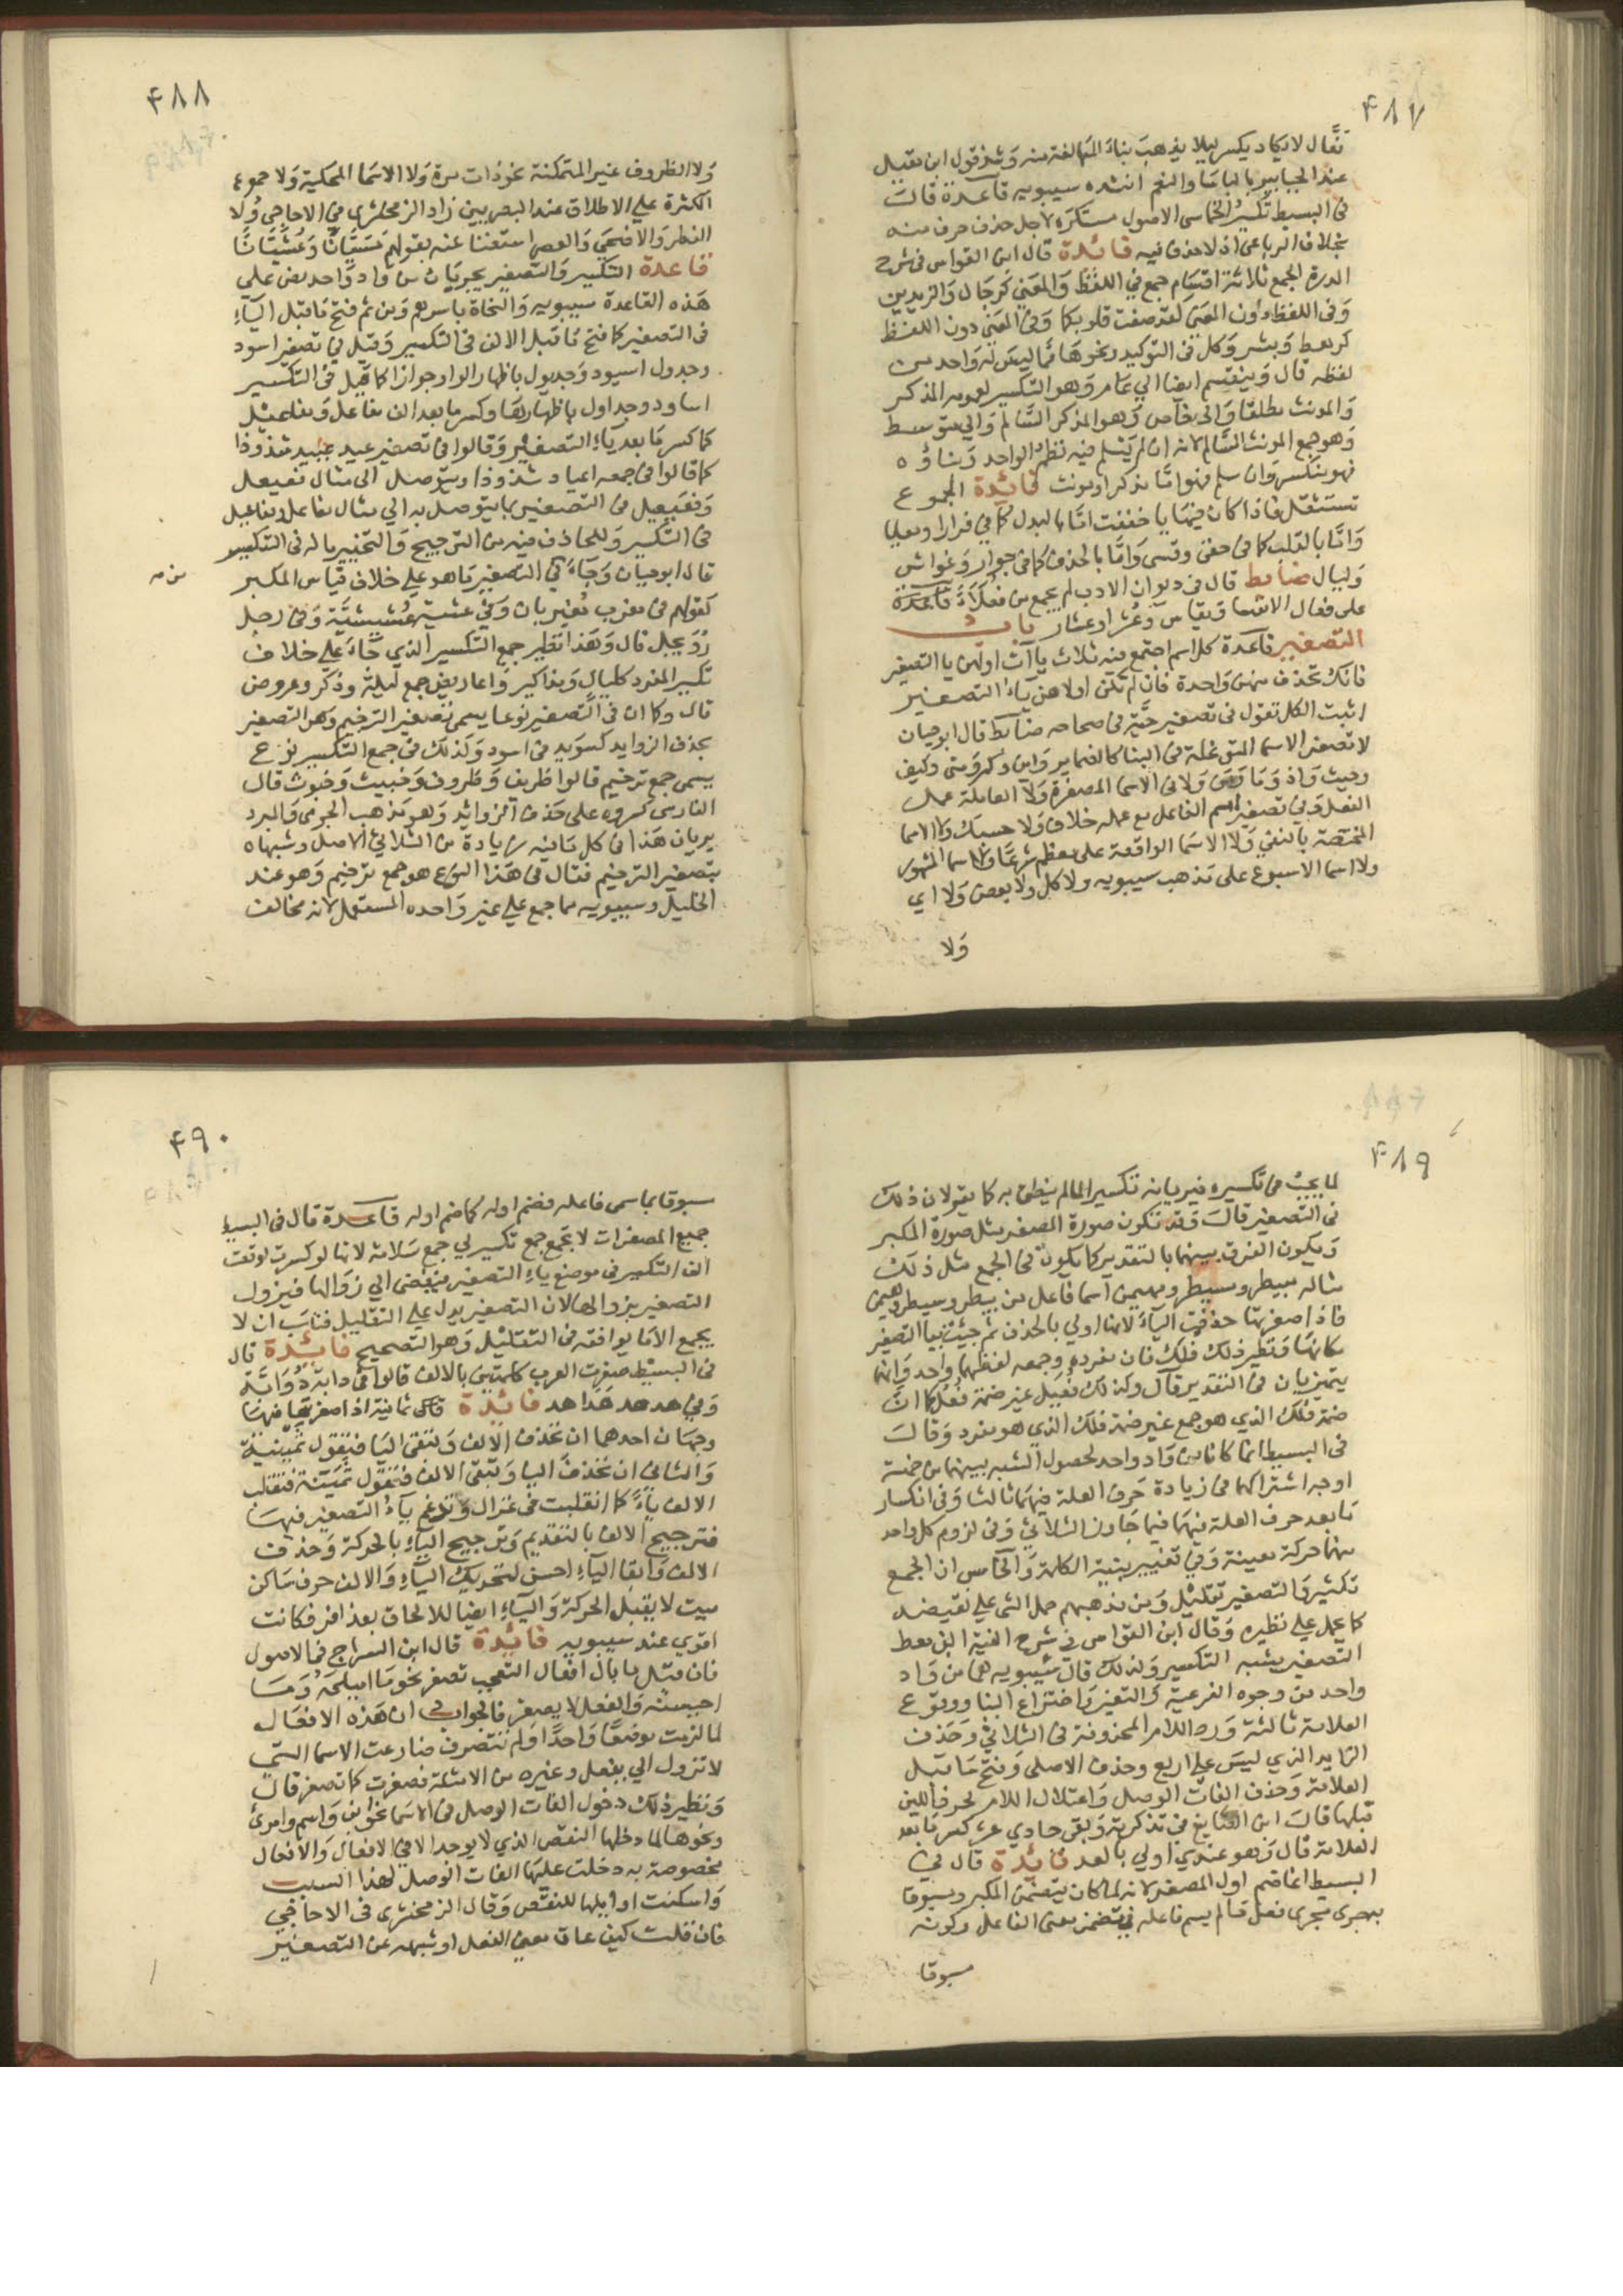 ٤٨٧
فعّال لا يكاد يكسر ليلا يذهب بناء المبالغة منه وشذ قول ابن مقبل
عند الجبابير بالباسا والنعم انشده سيبويه قاعدة قال
في البسيط تكسير الخماسي الاصول مستكره لاجل حذف حرف منه
بخلاف الرباعي اذ لا حذف فيه فائدة قال ابن القواس في شرح
الدرة الجمع ثلاثة اقسام جمع في اللفظ والمعنى كرجال والزيدين
وفي اللفظ دون المعنى كقد صغت قلوبكما وفي المعنى دون اللفظ
كرهط وبشر وكل في التوكيد ونحوها مما ليس له واحد من
لفظه قال وينقسم ايضا الي عام وهو التكسير لعمومه المذكر
والمونث مطلقا والى خاص وهو المذكر السالم والي متوسط
وهو جمع المونث السالم لانه ان لم يسلم فيه نظم الواحد وبناؤه
فهو مكسر وان سلم فهو اما مذكر او مونث فائدة الجموع
تستثقل فاذا كان فيها يا خففت اما بالبدل كما في مدارا ومعايا
واما بالقلب كما في حقي وقسي واما بالحذف كما في جوار وغواش
وليال ضابط قال في ديوان الادب لم يجمع من فعلاء
على فعال الا نفسا ونفاس وعشرا وعشار باب
التصغير قاعدة كل اسم اجتمع فيه ثلاث يا آت اولهن يا التصغير
فانك تحذف منهن واحدة فان لم تكن اولاهن ياء التصغير
اثبت الكل تقول في تصغير حية في صحاحه ضابط قال ابو حيان
لا تصغر الاسما المتوغلة في البنا كالضماير واين وكم ومتى وكيف
وحيث واذ وما ومن ولا في الاسما المصغرة ولا العاملة عمل
الفعل وفي تصغير اسم الفاعل مع عمله خلاف ولا حسبك ولا الاسما
المختصة بالنفي ولا الاسما الواقعة على معظم شرعا ولا اسما الشهور
ولا اسما الاسبوع على مذهب سيبويه ولا كل ولا بعض ولا اي
ولا
٤٨٨
ولا الظروف غير المتمكنة نحو ذات مرة ولا الاسما المحكية ولا جموع
الكثرة علي الاطلاق عند البصريين زاد الزمخشري في الاحاجي ولا
الفطر والاضحى والعصر استغنا عنه بقولهم مسيانا وعشيانا
قاعدة التكسير والتصغير يجريان من واد واحد نص علي
هذه القاعدة سيبويه والنحاة باسرهم ومن ثم فتح ما قبل الياء
في التصغير كما فتح ما قبل الالف في التكسير وقيل في تصغير اسود
وجدول اسيود وجديول باظهار الواو جوازا كما قيل في التكسير
اساود وجداول باظهارها وكسر ما بعد الف مفاعل ومفاعيل
كما كسر ما بعد ياء التصغير وقالوا في تصغير عيد عييد شذوذا
كما قالوا في جمعه اعياد شذوذا ويتوصل الى مثال فعيعل
وفعيعيل في التصغير بما يتوصل به الي مثال مفاعل ومفاعيل
في التكسير وللحاذف فيه من الترجيح والتخيير ما له في التكسير
قال ابو حيان وجاء في التصغير ما هو على خلاف قياس المكبر
كقولهم في مغرب مغيربان وفي عشية عشيشية وفي رجل
رويجل قال وهذا نظير جمع التكسير الذي جاء علي خلاف
تكسير المفرد كليال ومذاكير واعاريض جمع ليلة وذكر وعروض
قال وكما ان في التصغير نوعا يسمى تصغير الترخيم وهو التصغير
بحذف الزوايد كسويد في اسود وكذلك في جمع التكسير نوع
يسمى جمع ترخيم قالوا ظريف وظروف وخبيث وخبوث قال
الفارسي كسروه على حذف الزوائد وهو مذهب الجرمي والمبرد
يريان هذا في كل ما فيه زيادة من الثلاثي الاصل وشبهاه
بتصغير الترخيم فقال في هذا النوع هو جمع ترخيم وهو عند
الخليل وسيبويه مما جمع علي غير واحده المستعمل لانه مخالف
٤٨٩
لما يجب في تكسيره فيريانه تكسيرا لما لم ينطق به كما يقولان ذلك
في التصغير قال وقد تكون صورة المصغر مثل صورة المكبر
ويكون الفرق بينهما بالتقدير كما يكون في الجمع مثل ذلك
مثاله مبيطر ومسيطر ومهيمن اسما فاعل من بيطر وسيطر وهيمن
فاذا صغرتها حذفت الياء لانها اولي بالحذف ثم جئت بيا التصغير
مكانها ونظير ذلك فلك فان مفرده وجمعه لفظهما واحد وانما
يتميزان في التقدير قال وكذلك فعيل غير ضمة فعل كما ان
ضمة فلك الذي هو جمع غير ضمة فلك الذي هو مفرد وقال
في البسيط انما كانا من واد واحد لحصول الشبه بينهما من خمسة
اوجه اشتراكهما في زيادة حرف العلة فيهما ثالثا وفي انكسار
ما بعد حرف العلة فيهما فيما جاوز الثلاثي وفي لزوم كل واحد
منهما حركة معينة وفي تغيير بنية الكلمة والخامس ان الجمع
تكثير والتصغير تقليل ومن مذهبهم حمل الشي علي نقيضه
كما يحمل علي نظيره وقال ابن القواس في شرح الفية ابن معط
التصغير يشبه التكسير ولذلك قال سيبويه هما من واد
واحد من وجوه الفرعية والتغير واختراع البنا ووقوع
العلامة ثالثة ورد اللام المحذوفة في الثلاثي وحذف
الزايد الذي ليس علي اربع وحذف الاصلي وفتح ما قبل
العلامة وحذف الفات الوصل واعتلال اللام لحرف اللين
قبلها قال ابن الصايغ في تذكرته وبقي حادي عشر كسر ما بعد
العلامة قال وهو عندي اولي بالعد فائدة قال في
البسيط انما ضم اول المصغر لانه لما كان يتضمن المكبر ومسبوقا
به جري مجرى فعل ما لم يسم فاعله في تضمن معنى الفاعل وكونه
مسبوقا
٤٩٠
مسبوقا بما سمي فاعله فضم اوله كما ضم اوله قاعدة قال في البسيط
جميع المصغرات لا تجمع جمع تكسير بل جمع سلامة لانها لو كسرت لوقعت
الف التكسير في موضع ياء التصغير فيفضي الي زوالها فيزول
التصغير بزوالها ولان التصغير يدل علي التقليل فناسب ان لا
يجمع الا ما يوافقه في التقليل وهو التصحيح فائدة قال
في البسيط صغرت العرب كلمتين بالالف قالوا في دابة دوابة
وفي هدهد هداهد فائدة قال ثمانية اذا صغرتها فيها
وجهان احدهما ان تحذف الالف وتبقى اليا فتقول ثمينية
والثاني ان تحذف اليا وتبقى الالف فتقول ثمينة فتقلب
الالف ياء كما انقلبت في غزال وتدغم ياء التصغير فيها
فترجيح الالف بالتقديم وترجيح الياء بالحركة وحذف
الالف وابقا الياء احسن لتحريك الياء والالف حرف ساكن
ميت لا يقبل الحركة والياء ايضا للالحاق بعذافر فكانت
اقوي عند سيبويه فائدة قال ابن السراج في الاصول
فان قيل ما بال افعال التعجب تصغر نحو ما اميلحه وما
احيسنه والفعل لا يصغر فالجواب ان هذه الافعال
لما لزمت موضعا واحدا ولم تتصرف ضارعت الاسما التي
لا تزول الي يفعل وغيره من الامثلة فصغرت كما تصغر قال
ونظير ذلك دخول الفات الوصل في الاسما نحو ابن واسم وامرئ
ونحوها لما دخلها النقص الذي لا يوجد الا في الافعال والافعال
مخصوصة به دخلت عليها الفات الوصل لهذا السبب
واسكنت اوايلها للنقص وقال الزمخشري في الاحاجي
فان قلت كيف عاق معنى الفعل او شبهه عن التصغير